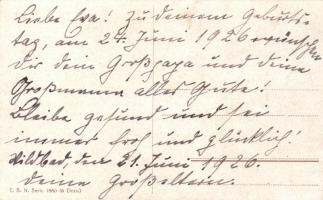 Liebe Eva! Zu deinem Geburts-
tag, am 24. Juni 1926 wünschen
dir dein Großpapa und deine
Großmama alles Gute!
Bleibe gesund und sei
immer froh und glücklich!
Wildbad, den 21. Juni 1926.
deine Großeltern.